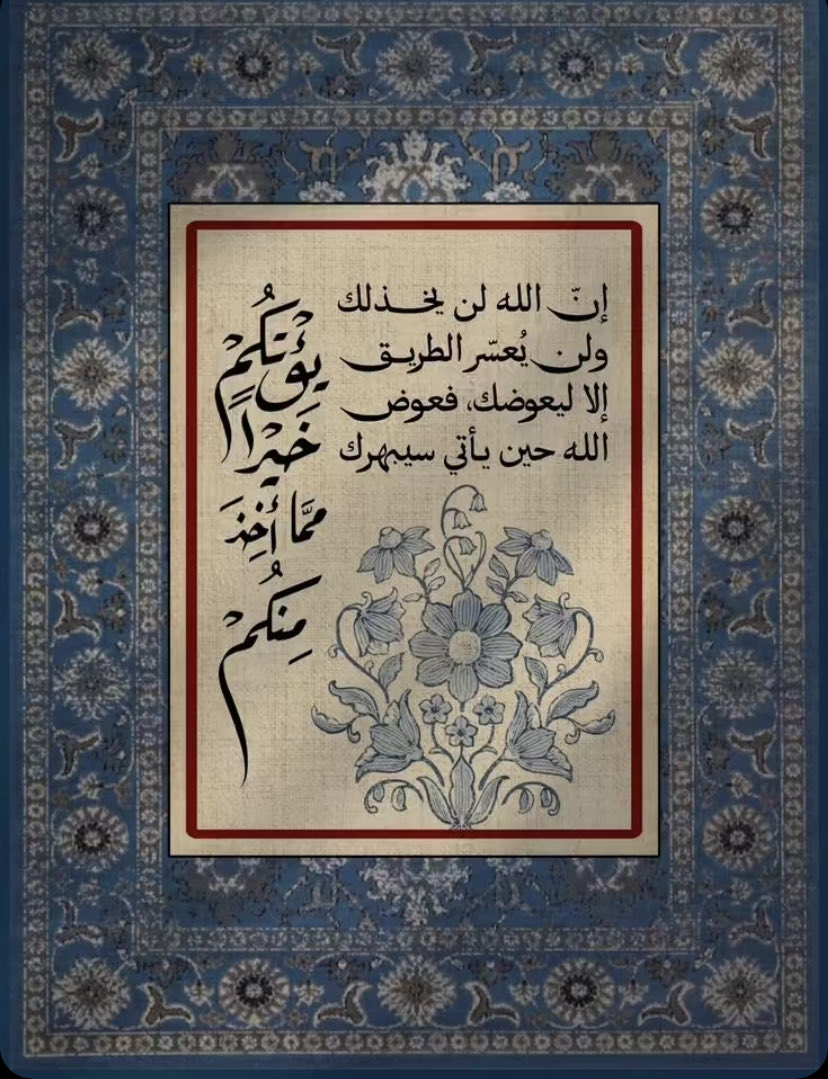 إنّ الله لن يخذلك
ولن يُعسّر الطريق
إلا ليعوضك، فعوض
الله حين يأتي سيبهرك
يُؤْتِكُمْ
خَيْرًا
مِمَّا أُخِذَ
مِنكُمْ